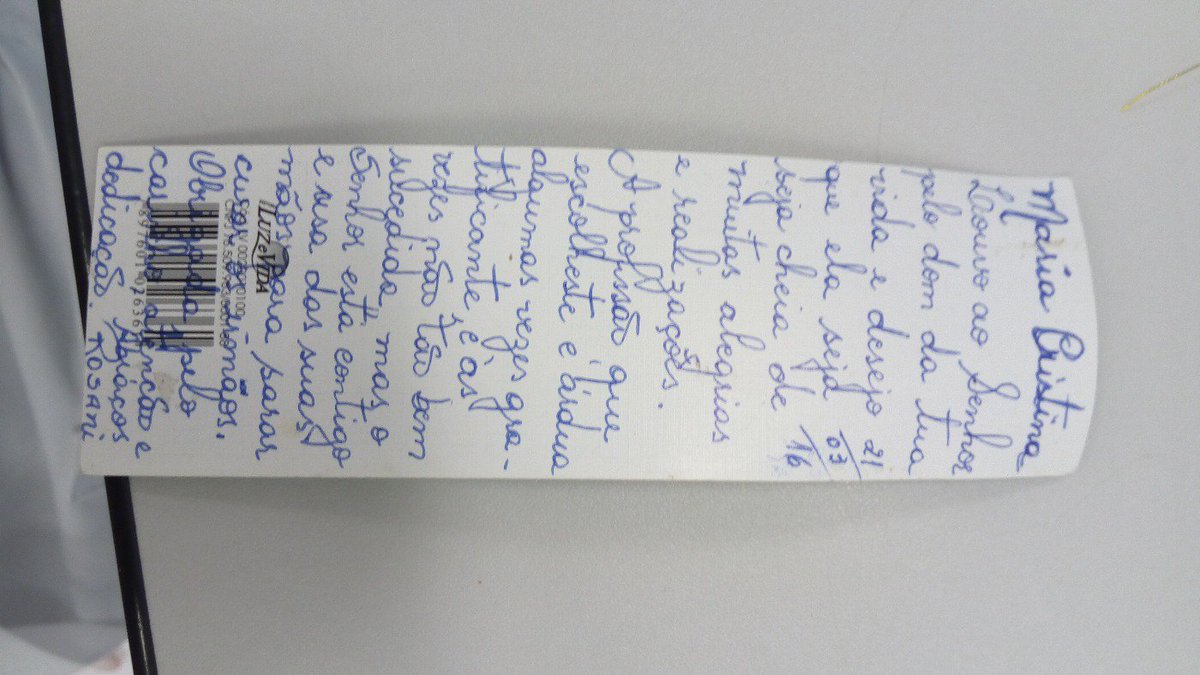 Maria Cristina
Louvo ao Senhor
pelo dom da tua
vida e desejo 21
que ela seja 03
seja cheia de 16
muitas alegrias
e realizações.
A profissão que
escolheste é árdua
algumas vezes gra-
tificante, e às
vezes não tão bem
sucedida, mas o
Senhor está contigo
e usa das suas
mãos para sarar
LUZ e VIDA
os irmãos.
Obrigada pelo
carinho atenção e
dedicação. Abraços
Rosani